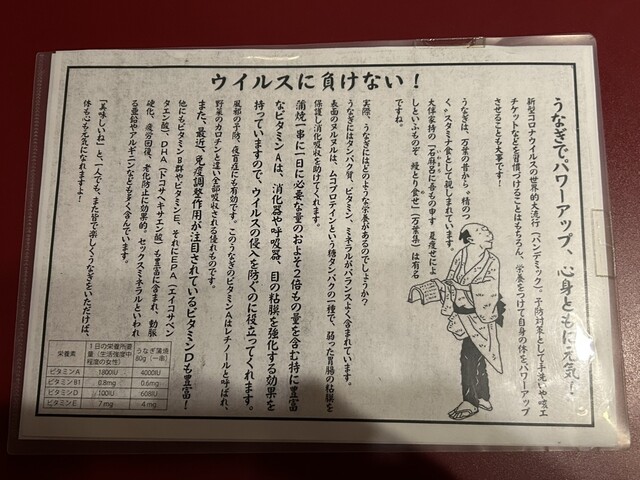 ウイルスに負けない！
うなぎでパワーアップ、心身ともに元気！
新型コロナウイルスの世界的大流行「パンデミック」。予防対策として手洗いや咳エ
チケットなどを習慣づけることはもちろん、栄養をつけて自身の体をパワーアップ
させることも大事です！
うなぎは、万葉の昔から〝精のつ
く〟スタミナ食として親しまれています。
大伴家持の「石麻呂に吾もの申す 夏痩せによ
しといふものぞ 鰻とり食せ」（万葉集）は有名
ですね。
実際、うなぎにはどのような栄養があるのでしょうか？
うなぎにはタンパク質、ビタミン、ミネラルがバランスよく含まれています。
表面のヌルヌルは、ムコプロテインという糖タンパクの一種で、弱った胃腸の粘膜を
保護し消化吸収を助けてくれます。
蒲焼一串に一日に必要な量のおよそ２倍もの量を含む特に豊富
なビタミンＡは、消化器や呼吸器、目の粘膜を強化する効果を
持っていますので、ウイルスの侵入を防ぐのに役立ってくれます。
風邪の予防、夜盲症にも有効です。このうなぎのビタミンＡはレチノールと呼ばれ、
野菜のカロチンと違い全部吸収される優れものです。
また、最近、免疫調整作用が注目されているビタミンＤも豊富！
他にもビタミンＢ群やビタミンＥ、それにＥＰＡ（エイコサペン
タエン酸）、ＤＨＡ（ドコサヘキサエン酸）も豊富に含まれ、動脈
硬化、疲労回復、老化防止に効果的。セックスミネラルといわれ
る亜鉛やアルギニンなども多く含んでいます。
「美味しいね」と、一人でも、また皆で楽しくうなぎをいただけば、
体も心も元気になれますよ！
栄養素 1日の栄養所要量（生活強度中程度の女性） うなぎ蒲焼80g（一串）
ビタミンA 1800IU 4000IU
ビタミンB1 0.8mg 0.6mg
ビタミンD 100IU 608IU
ビタミンE 7mg 4mg